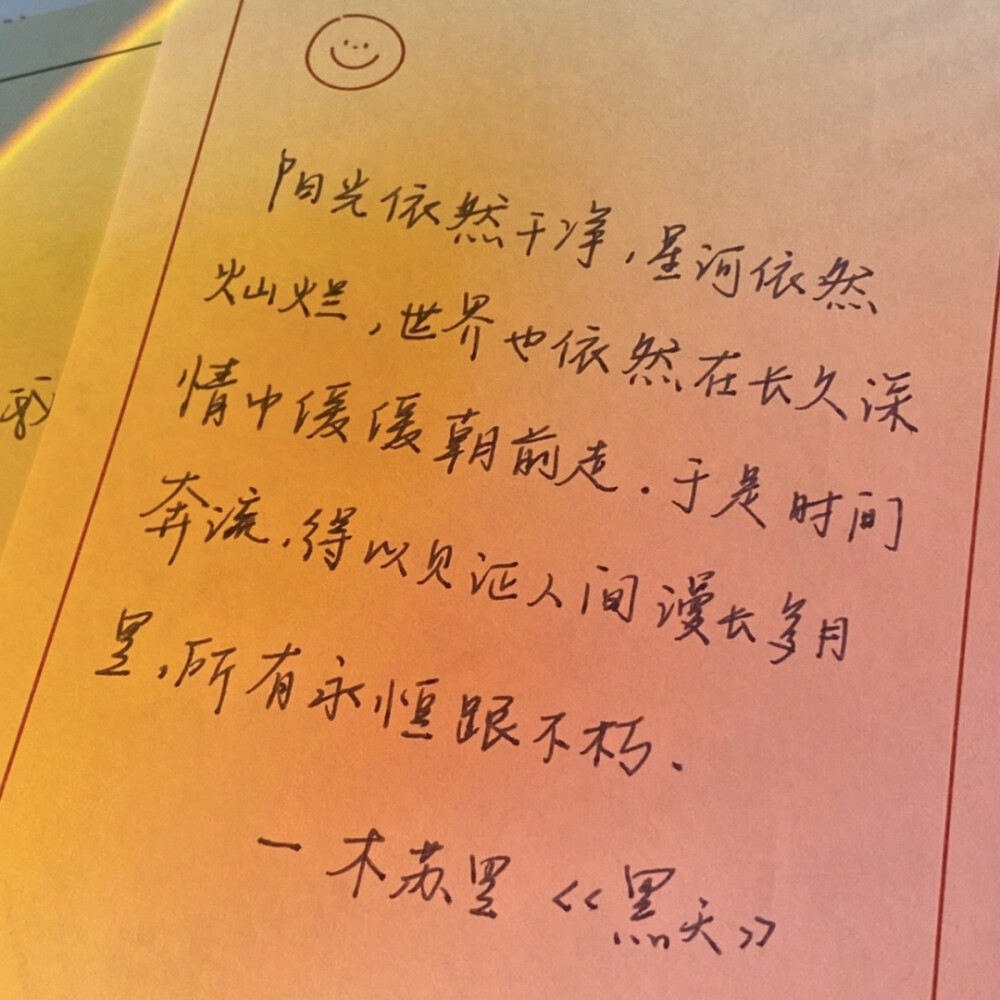 阳光依然干净,星河依然
灿烂,世界也依然在长久深
情中缓缓朝前走.于是时间
奔流,得以见证人间漫长岁月
里,所有永恒跟不朽.
—木苏里《黑天》